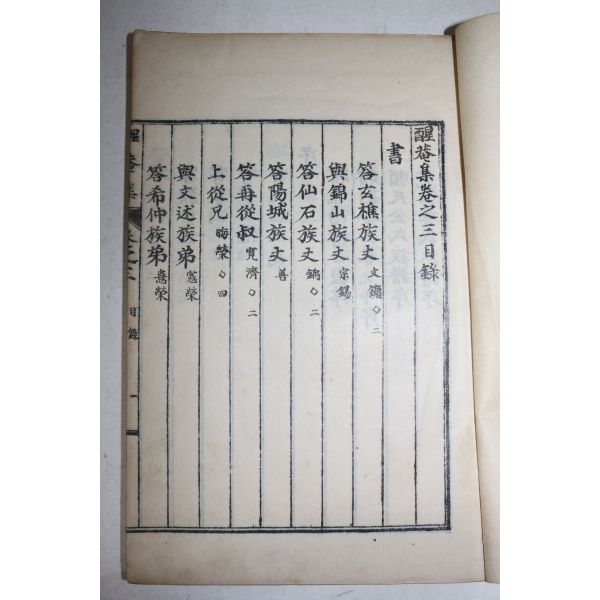 醒菴集卷之三目錄
書
答玄樵族丈 文鏞 ◇二
與錦山族丈 宗錫
答仙石族丈 ◇二
答陽城族丈 普
答再從叔 寬濟 ◇二
上從兄 晦榮 ◇四
與文述族弟 寬榮
答希仲族弟 憙榮
醒菴集 卷之三 目錄 一